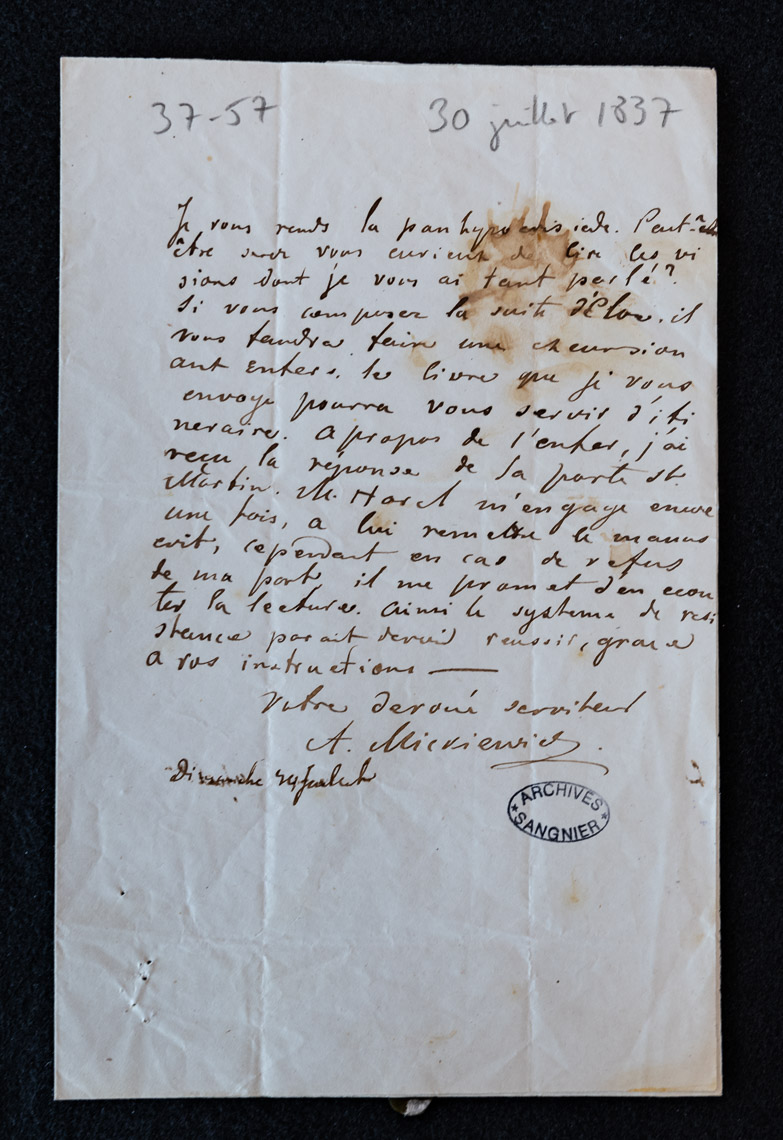 37-57 30 juillet 1837
Je vous rends la panhypocrisiade. Peut-être
être serez vous curieux de lire les vi
sions dont je vous ai tant parlé?
Si vous composez la suite d'Eloa, il
vous faudra faire une excursion
aux Enfers. le livre que je vous
envoye pourra vous servir d'iti
neraire. a propos de l'enfer, j'ai
reçu la réponse de la porte St.
Martin. M. Harel m'engage encore
une fois, a lui remettre le manus
crit, cependant en cas de refus
de ma part, il me promet d'en ecou
ter la lecture. ainsi le systeme de resi
stance parait devoir reussir, grace
a vos instructions —
Votre devoué serviteur
A. Mickiewicz.
Dimanche juillet
★ ARCHIVES ★
SANGNIER